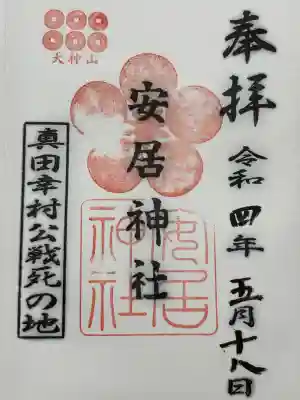 奉拝
令和四年五月十八日
安居神社
安居神社
天神山
真田幸村公戦死の地